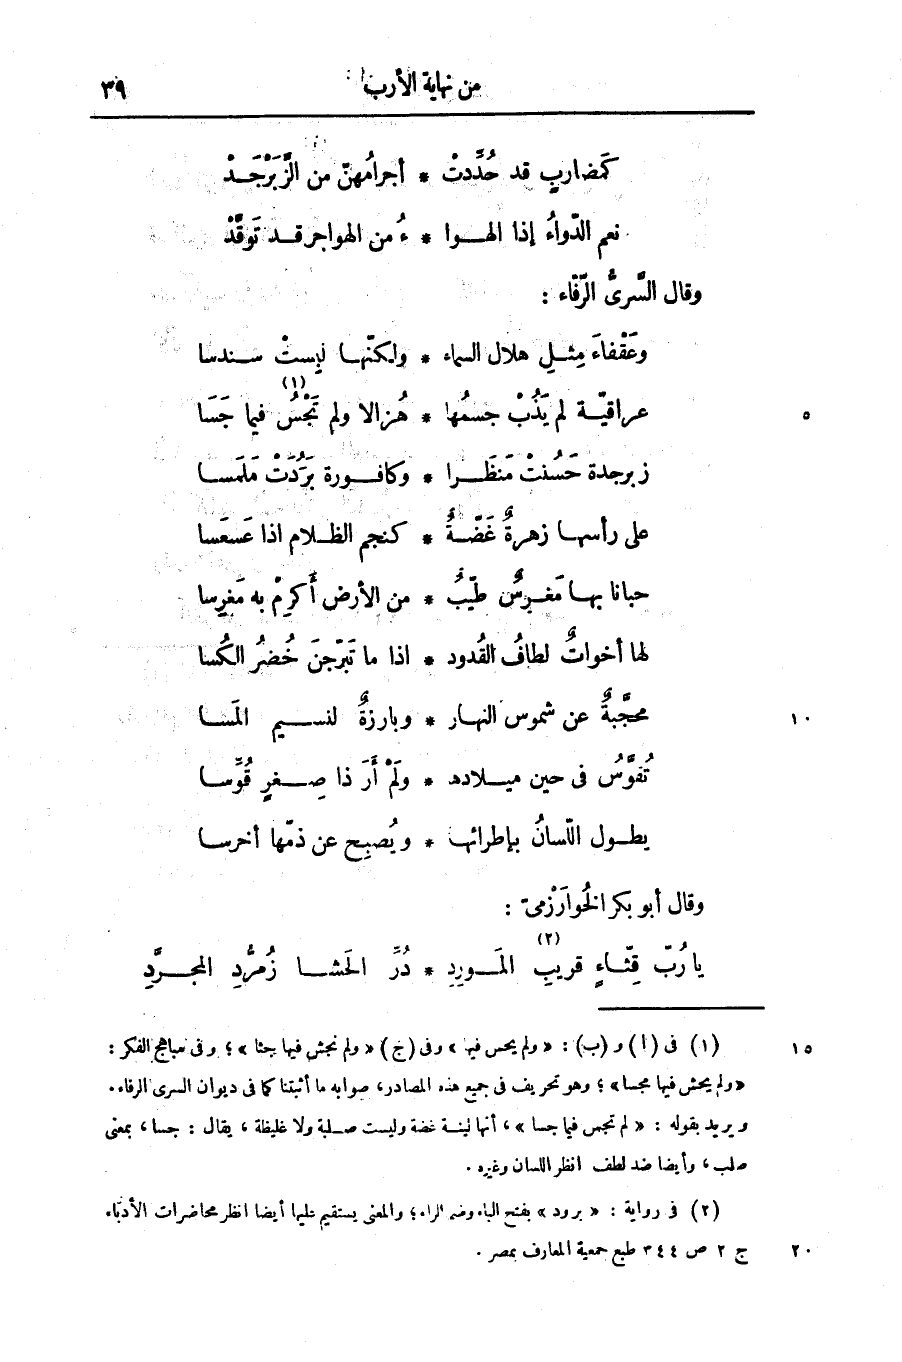 من نهاية الأرب ٣٩
كَمضاربٍ قد حُدِّدتْ * أجرامُهنّ من الزَّبَرْجَدْ
نعم الدّواءُ إذا الهوا * ءُ من الهواجر قد تَوقَّدْ
وقال السَّرىُّ الرّفّاء :
وعَقْفاءَ مِثلِ هلال السماء * ولكنّها لبِستْ سندسا
(١)
عراقيّة لم يَذُبْ جسمُها * هُزالا ولم تَجْسُ فيما جَسَا ٥
زبرجدة حَسُنتْ مَنظَرا * وكافورة بَرُدَتْ مَلمَسا
على رأسها زهرةٌ غَضّةٌ * كنجم الظلام اذا عَسعَسا
حبانا بها مَغرِسٌ طيّبٌ * من الأرض أَكرِمْ به مَغرِسا
لها أخواتٌ لطافُ القُدود * اذا ما تَبَرّجنَ خُضرُ الكُسا
محجَّبةٌ عن شموس النهار * وبارزةٌ لنسيم المَسا ١٠
تُقوَّسُ فى حين ميلادها * ولَمْ أَرَ ذا صِغرٍ قُوِّسا
يطول اللّسانُ بإطرائها * ويُصبِح عن ذمّها أخرسا
وقال أبو بكر الخُوارَزْمىّ :
(٢)
يا رُبّ قِثّاءٍ قريبِ المَورِدِ * دُرِّ الحَشا زُمرُّدِ المجرَّدِ
(١) فى (أ) و (ب) : « ولم يحس فيها » وفى (ج) « ولم نجش فيها جثا » ؛ وفى مباهج الفكر : ١٥
«ولم يحش فيها مجسا» ؛ وهو تحريف فى جميع هذه المصادر، صوابه ما أثبتنا كما فى ديوان السرى الرفاء .
ويريد بقوله : « لم تجس فيما جسا »، أنها لينة غضة وليست صلبة ولا غليظة ، يقال : جسا، بمعنى
صلب، وأيضا ضد لطف انظر اللسان وغيره .
(٢) فى رواية : « برود » بفتح الباء وضم الراء؛ والمعنى يستقيم عليها أيضا انظر محاضرات الأدباء
ج ٢ ص ٣٤٤ طبع جمعية المعارف بمصر . ٢٠